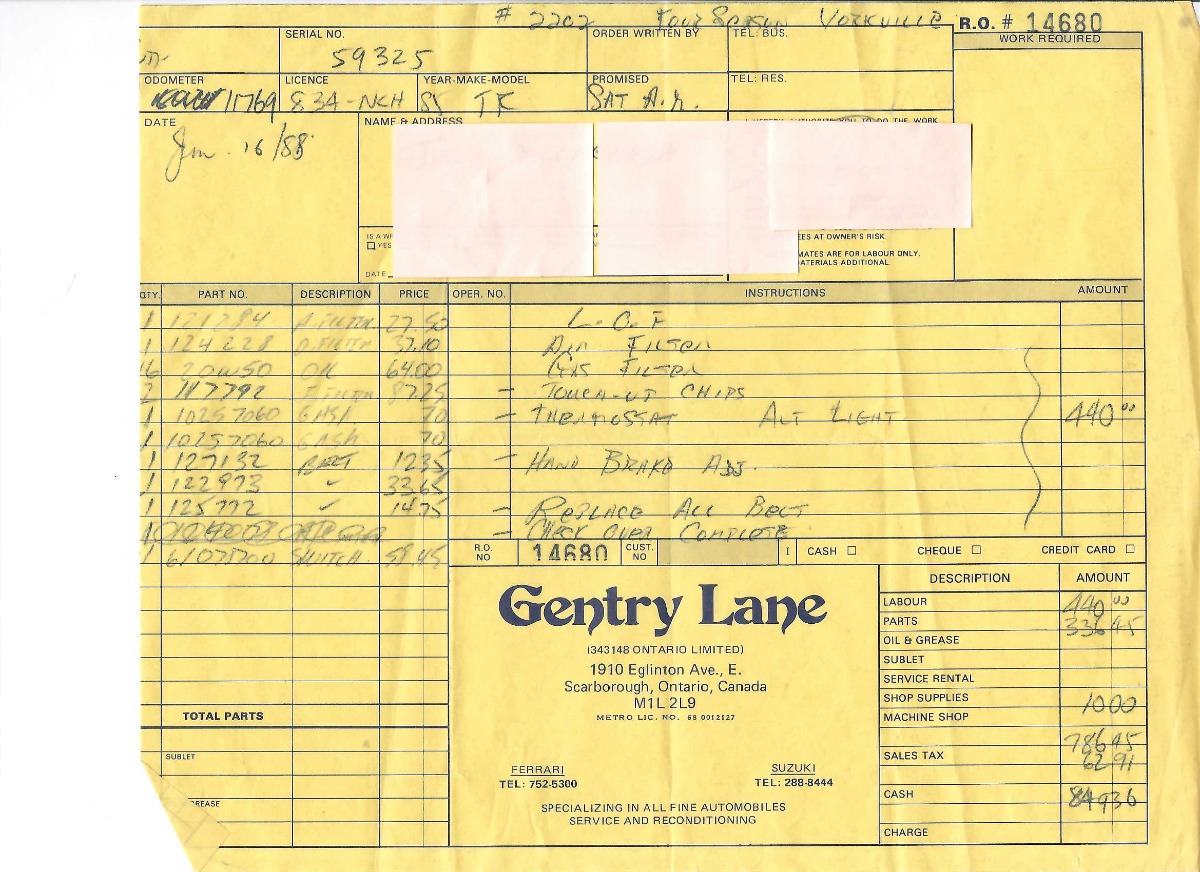 # 2202 Four Season Yorkville
R.O. # 14680
SERIAL NO. 59325
ORDER WRITTEN BY
TEL: BUS.
WORK REQUIRED
ODOMETER 11769
LICENCE 834-NCH
YEAR-MAKE-MODEL 85 TR
PROMISED SAT A.M.
TEL: RES.
DATE Jan. 16/88
NAME & ADDRESS
I HEREBY AUTHORIZE YOU TO DO THE WORK
IS A WR
YES
DATE
EES AT OWNER'S RISK.
MATES ARE FOR LABOUR ONLY.
ATERIALS ADDITIONAL.
QTY. PART NO. DESCRIPTION PRICE OPER. NO. INSTRUCTIONS AMOUNT
1 121284 A. FILTER 27.50 L.O.F
1 124228 O. FILTER 37.10 AIR FILTER
16 20W50 OIL 64.00 GAS FILTER
2 117792 F. FILTER 87.25 - TOUCH-UP CHIPS
1 10257060 GASK 70 - THERMOSTAT ALT LIGHT 440 00
1 10257060 GASK 70
1 127132 BELT 1235 - HAND BRAKE ADJ.
1 122973 ✓ 33.65
1 125772 ✓ 1475 - REPLACE ALL BELT
- CHECK OVER COMPLETE
1 61075700 SWITCH. 58.45
R.O. NO 14680 CUST. NO I CASH ☐ CHEQUE ☐ CREDIT CARD ☐
Gentry Lane
(343148 ONTARIO LIMITED)
1910 Eglinton Ave., E.
Scarborough, Ontario, Canada
M1L 2L9
METRO LIC. NO. 68 0012127
FERRARI
TEL: 752-5300
SUZUKI
TEL: 288-8444
SPECIALIZING IN ALL FINE AUTOMOBILES
SERVICE AND RECONDITIONING
DESCRIPTION AMOUNT
LABOUR 440 00
PARTS 336 45
OIL & GREASE
SUBLET
SERVICE RENTAL
SHOP SUPPLIES 10 00
MACHINE SHOP
786 45
SALES TAX 62 91
CASH 849 36
CHARGE
TOTAL PARTS
SUBLET
GREASE